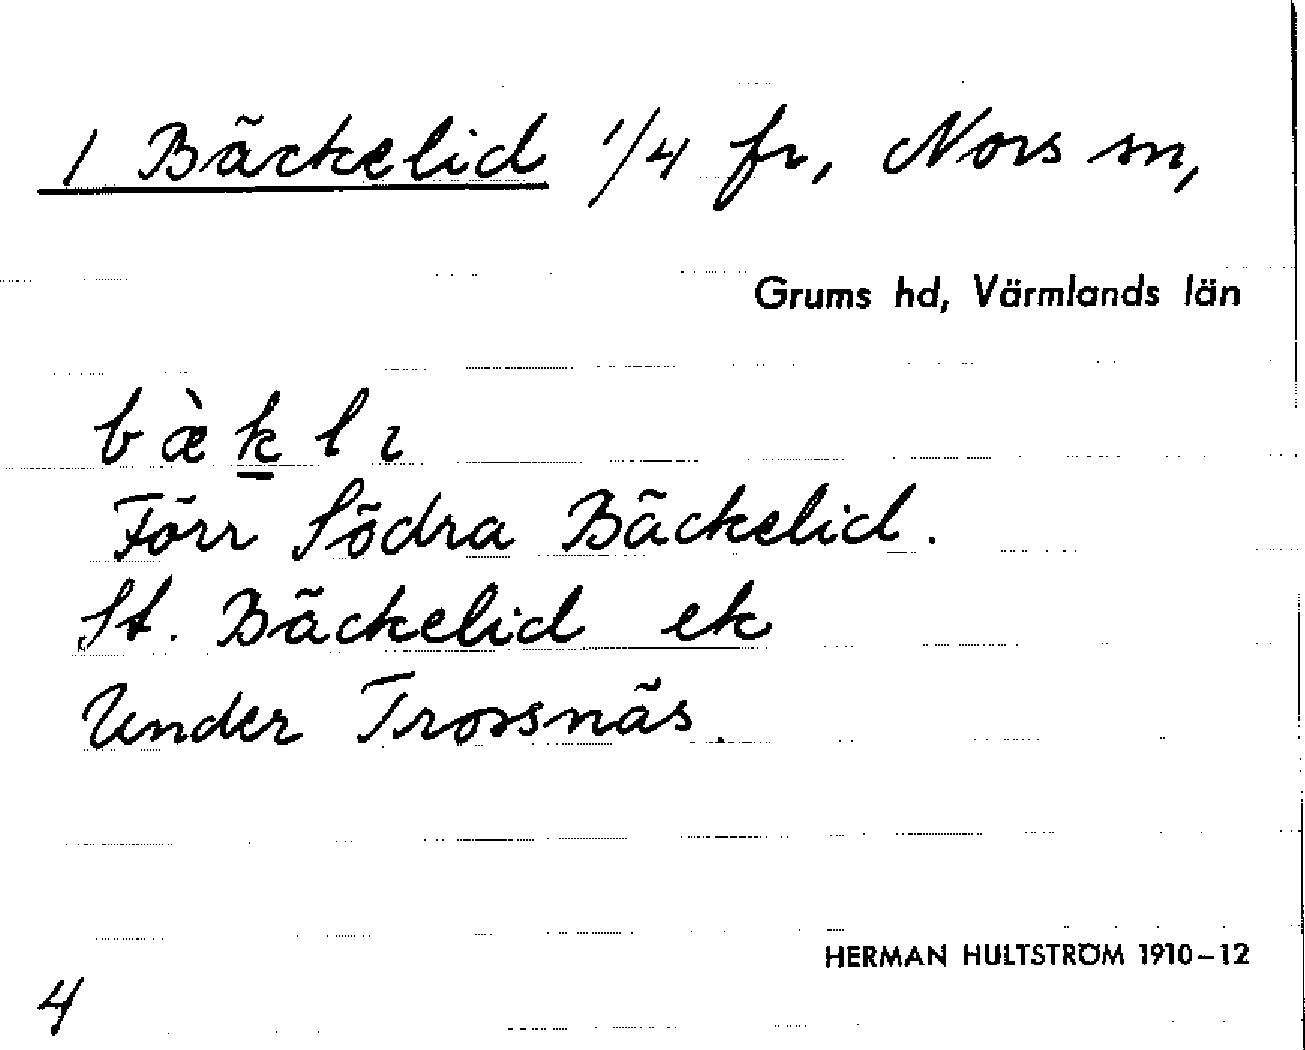 1 Bäckelid 1/4 fr, Nors sn,
Grums hd, Värmlands län
bæ̀k̲lɩ
Förr Södra Bäckelid.
St. Bäckelid ek
Under Trossnäs.
HERMAN HULTSTRÖM 1910-12
4